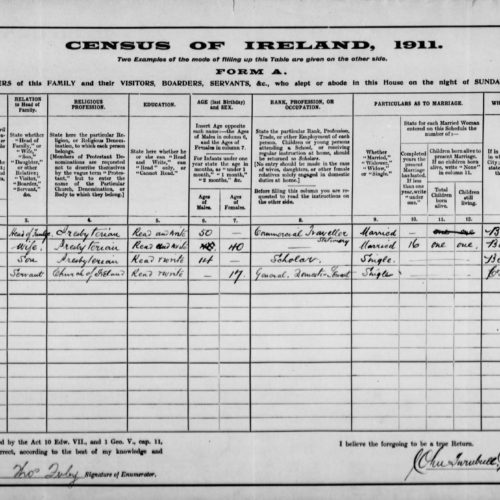 CENSUS OF IRELAND, 1911.
Two Examples of the mode of filling up this Table are given on the other side.
FORM A.
ERS of this FAMILY and their VISITORS, BOARDERS, SERVANTS, &c., who slept or abode in this House on the night of SUNDA
RELATION to Head of Family.
State whether "Head of Family," or "Wife," "Son," "Daughter," or other Relative; "Visitor," "Boarder," "Servant," &c.
RELIGIOUS PROFESSION.
State here the particular Religion, or Religious Denomination, to which each person belongs.
[Members of Protestant Denominations are requested not to describe themselves by the vague term "Protestant," but to enter the name of the Particular Church, Denomination, or Body to which they belong.]
EDUCATION.
State whether he or she can "Read and Write," can "Read" only, or "Cannot Read."
AGE (last Birthday) and SEX.
Insert Age opposite each name:—the Ages of Males in column 6, and the Ages of Females in column 7.
For Infants under one year state the age in months, as "under 1 month," "1 month," "2 months," &c.
Ages of Males.
Ages of Females.
RANK, PROFESSION, OR OCCUPATION.
State the particular Rank, Profession, Trade, or other Employment of each person. Children or young persons attending a School, or receiving regular instruction at home, should be returned as Scholars.
[No entry should be made in the case of wives, daughters, or other female relatives solely engaged in domestic duties at home.]
Before filling this column you are requested to read the instructions on the other side.
PARTICULARS AS TO MARRIAGE.
Whether "Married," "Widower," "Widow," or "Single."
State for each Married Woman entered on this Schedule the number of:—
Completed years the present Marriage has lasted. If less than one year, write "under one."
Children born alive to present Marriage. If no children born alive, write "None" in column 11.
Total Children born alive.
Children still living.
3. 4. 5. 6. 7. 8. 9. 10. 11. 12.
Head of Family Presbyterian Read and write 50 — Commercial Traveller Stationery Married —
Wife Presbyterian Read and write 40 Married 16 one one.
Son Presbyterian Read & write 14 — Scholar. Single.
Servant Church of Ireland Read & write — 17. General Domestic Servant Single
ed by the Act 10 Edw. VII., and 1 Geo. V., cap. 11,
rrect, according to the best of my knowledge and
I believe the foregoing to be a true Return.
Signature of Enumerator.
John Turnbull